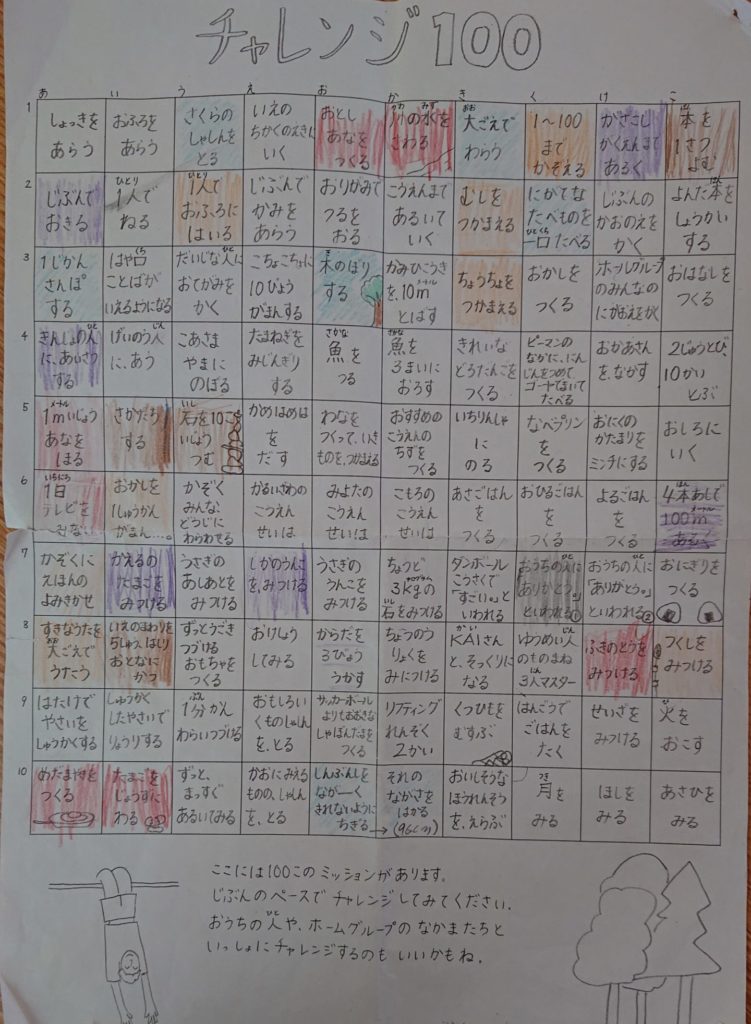 チャレンジ100
あ い う え お か き く け こ
1
しょっきを
あらう
おふろを
あらう
さくらの
しゃしんを
とる
いえの
ちかくのえきに
いく
おとし
あなを
つくる
かわ みず
川の水を
さわる
おお
大ごえで
わらう
1〜100
まで
かぞえる
かざこし
がくえんまで
あるく
ほん
本を
1さつ
よむ
2
じぶんで
おきる
ひとり
1人で
ねる
ひとり
1人で
おふろに
はいる
じぶんで
かみを
あらう
おりがみで
つるを
おる
こうえんまで
あるいて
いく
むしを
つかまえる
にがてな
たべものを
ひとくち
一口たべる
じぶんの
かおのえを
かく
ほん
よんだ本を
しょうかい
する
3
1じかん
さんぽ
する
くち
はや口
ことばが
いえるようになる
ひと
だいじな人に
おてがみを
かく
こちょこちょに
10びょう
がまんする
き
木のぼり
する
かみひこうき
メートル
を、10m
とばす
ちょうちょを
つかまえる
おかしを
つくる
ホームグループ
のみんなの
にがおえをかく
おはなしを
つくる
4
ひと
きんじょの人
に、あいさつ
する
じん
げいのう人
に、あう
こあさま
やまに
のぼる
たまねぎを
みじんぎり
する
さかな
魚を
つる
さかな
魚を
3まいに
おろす
きれいな
どろだんごを
つくる
ピーマンの
なかに、にん
じんをつめて、
ゴーヤでまいて
たべる
おかあさん
を、なかす
2じゅうとび、
10かい
とぶ
5
メートル
1mいじょう
あなを
ほる
さかだち
する
いし
石を10こ
いじょう
つむ
かめはめは
を
だす
わなを
つくって、いき
ものを、つかまえる
おすすめの
こうえんの
ちずを
つくる
いちりんしゃ
に
のる
なべプリン
を
つくる
おにくの
かたまりを
ミンチにする
おしろに
いく
6
いちにち
1日
テレビを
みない
おかしを
1しゅうかん
がまん…。
かぞく
みんな、
どうじに
わらわせる
かるいざわの
こうえん
せいは
みよたの
こうえん
せい!は
こもろの
こうえん
せいは
あさごはん
を
つくる
おひるごはん
を
つくる
よるごはん
を
つくる
ほん
4本あしで
メートル
100m
あるく
7
かぞくに
えほんの
よみきかせ
かえるの
たまごを
みつける
うさぎの
あしあとを
みつける
しかのうんこ
を、みつける
うさぎの
うんこを
みつける
ちょうど
3kgの
いし
石をみつける
ダンボール
こうさくで
「すごい。」と
いわれる
ひと
おうちの人に
「ありがとう。」
といわれる①
ひと
おうちの人に
「ありがとう。」
といわれる②
おにぎりを
つくる
8
すきなうたを
おお
大ごえで
うたう
いえのまわりを
5しゅう、はしり
おとなに
かつ
ずっとうごき
つづける
おもちゃを
つくる
おけしょう
してみる
からだを
3びょう
うかす
ちょうのう
りょくを
みにつける
かい
KAIさん
と、そっくりに
なる
じん
ゆうめい人
のものまね
にん
3人マスター
ふきのとうを
みつける
つくしを
みつける
9
はたけで
やさいを
しゅうかくする
しゅうかく
したやさいで
りょうりする
ぷん
1分かん
わらいつづける
おもしろい
くものしゃしん
を、とる
サッカーボール
よりもおおきな
しゃぼんだまを
つくる
リフティング
れんぞく
2かい
くつひもを
むすぶ
はんごうで
ごはんを
たく
せいざを
みつける
ひ
火を
おこす
10
めだまやきを
つくる
たまごを
じょうずに
わる
ずっと、
まっすぐ
あるいてみる
かおにみえる
ものの、しゃしん
を、とる
しんぶんしを
ながーく
きれないように
ちぎる→
それの
ながさを
はかる
(96cm)
おいしそうな
ほうれんそう
を、えらぶ
つき
月を
みる
ほしを
みる
あさひを
みる
ここには100このミッションがあります。
じぶんのペースでチャレンジしてみてください。
ひと
おうちの人や、ホームグループのなかまたちと
いっしょにチャレンジするのもいいかもね。